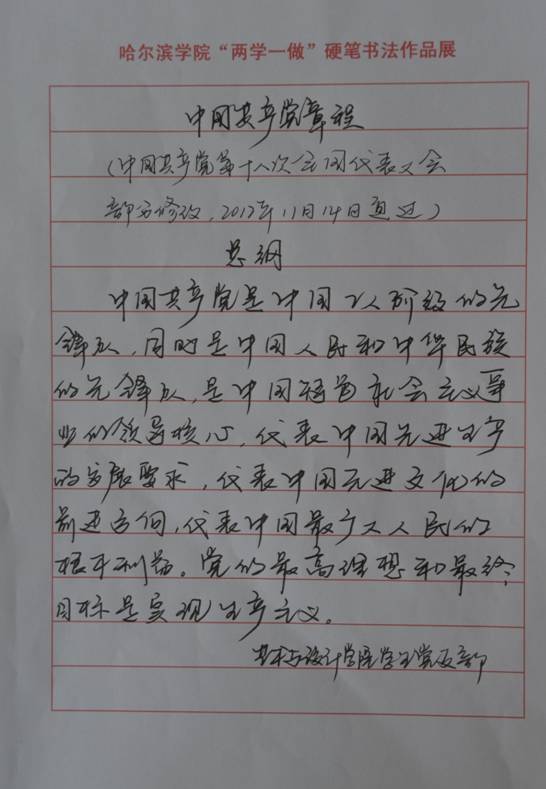 哈尔滨学院“两学一做”硬笔书法作品展
中国共产党章程
（中国共产党第十八次全国代表大会
部分修改，2012年11月14日通过）
总纲
中国共产党是中国工人阶级的先
锋队，同时是中国人民和中华民族
的先锋队，是中国特色社会主义事
业的领导核心，代表中国先进生产
的发展要求，代表中国先进文化的
前进方向，代表中国最广大人民的
根本利益。党的最高理想和最终
目标是实现生产主义。
艺术与设计学院学生党支部